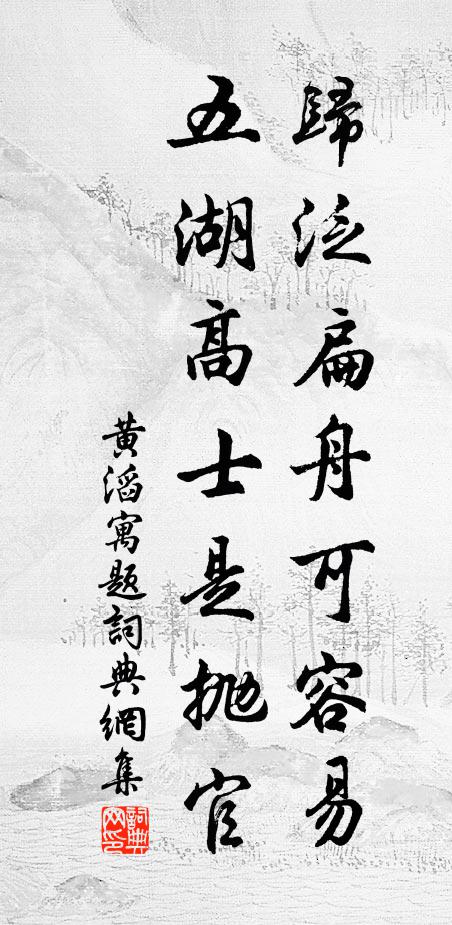 歸泛扁舟可容易
五湖高士是拋官
黃滔寓題詞典網集
詞典网印